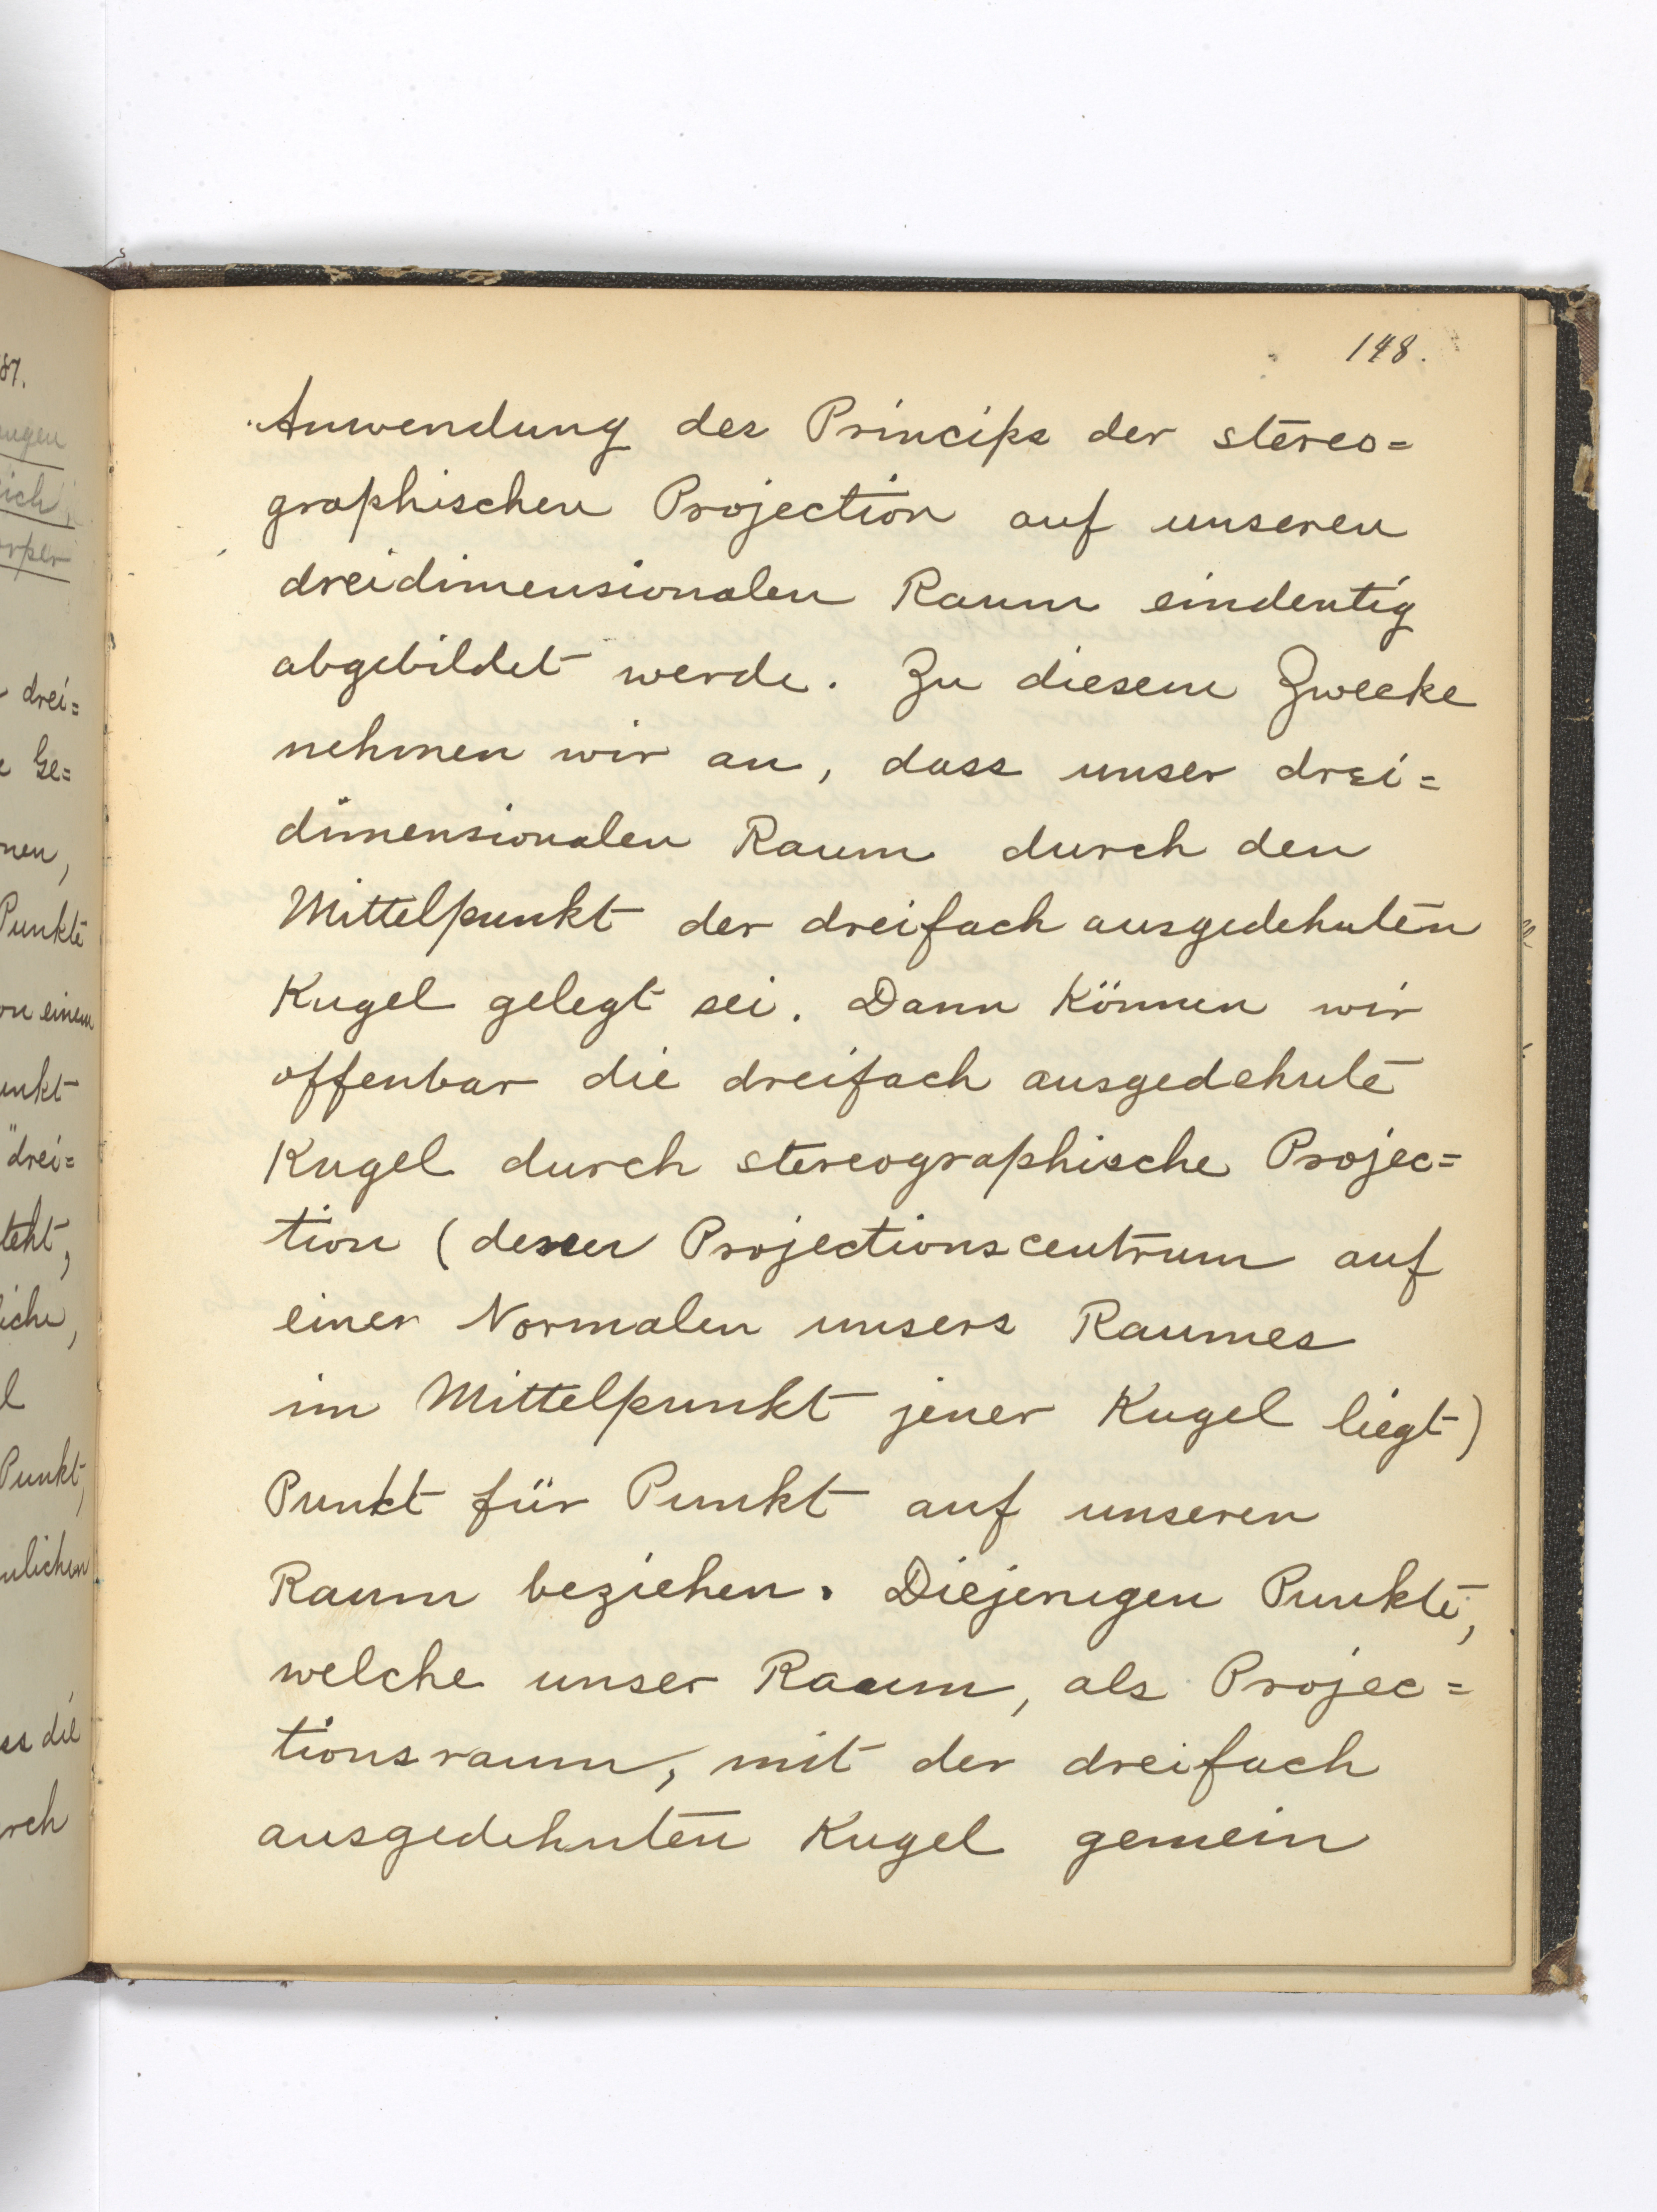 148.
Anwendung des Princips der stereo=
graphischen Projection auf unseren
dreidimensionalen Raum eindeutig
abgebildet werde. Zu diesem Zwecke
nehmen wir an, dass unser drei=
dimensionalen Raum durch den
Mittelpunkt der dreifach ausgedehnten
Kugel gelegt sei. Dann können wir
offenbar die dreifach ausgedehnte
Kugel durch stereographische Projec=
tion (deren Projectionscentrum auf
einer Normalen unsers Raumes
im Mittelpunkt jener Kugel liegt)
Punkt für Punkt auf unseren
Raum beziehen. Diejenigen Punkte,
welche unser Raum, als Projec=
tionsraum, mit der dreifach
ausgedehnten Kugel gemein
drei=
Ge=
Punkte
einem
drei=
Punkt,
die